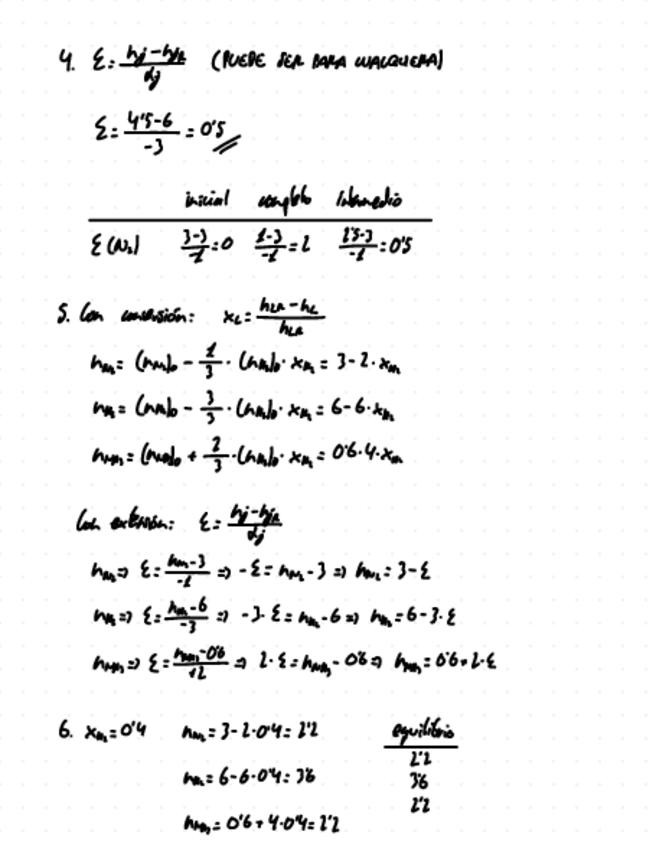 4. ξ = (nj - njR)/αj (PUEDE SER PARA CUALQUIERA)
ξ = (4'5-6)/-3 = 0'5
inicial completo Intermedio
ξ(N₂) (3-3)/-1 = 0 (1-3)/-1 = 2 (2'5-3)/-1 = 0'5
5. Con conversión: xL = (nLR - nL)/nLR
nN₂ = (nN₂)₀ - 1/3 · (nH₂)₀ · xH₂ = 3-2·xH₂
nH₂ = (nH₂)₀ - 3/3 · (nH₂)₀ · xH₂ = 6-6·xH₂
nNH₃ = (nNH₃)₀ + 2/3 · (nH₂)₀ · xH₂ = 0'6·4·xH₂
Con extensión: ξ = (nj - njR)/αj
nN₂ ⇒ ξ = (nN₂-3)/-1 ⇒ -ξ = nN₂-3 ⇒ nN₂ = 3-ξ
nH₂ ⇒ ξ = (nH₂-6)/-3 ⇒ -3·ξ = nH₂-6 ⇒ nH₂ = 6-3·ξ
nNH₃ ⇒ ξ = (nNH₃-0'6)/+2 ⇒ 2·ξ = nNH₃-0'6 ⇒ nNH₃ = 0'6+2·ξ
6. xH₂ = 0'4 nN₂ = 3-2·0'4 = 2'2 equilibrio
2'2
nH₂ = 6-6·0'4 = 3'6 3'6
2'2
nNH₃ = 0'6+4·0'4 = 2'2